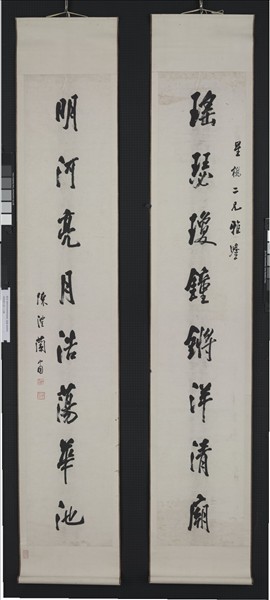 星二兄雅
瑤瑟瓊鐘鏘洋清廟
明河亮月浩蕩華池
陳澧蘭甫